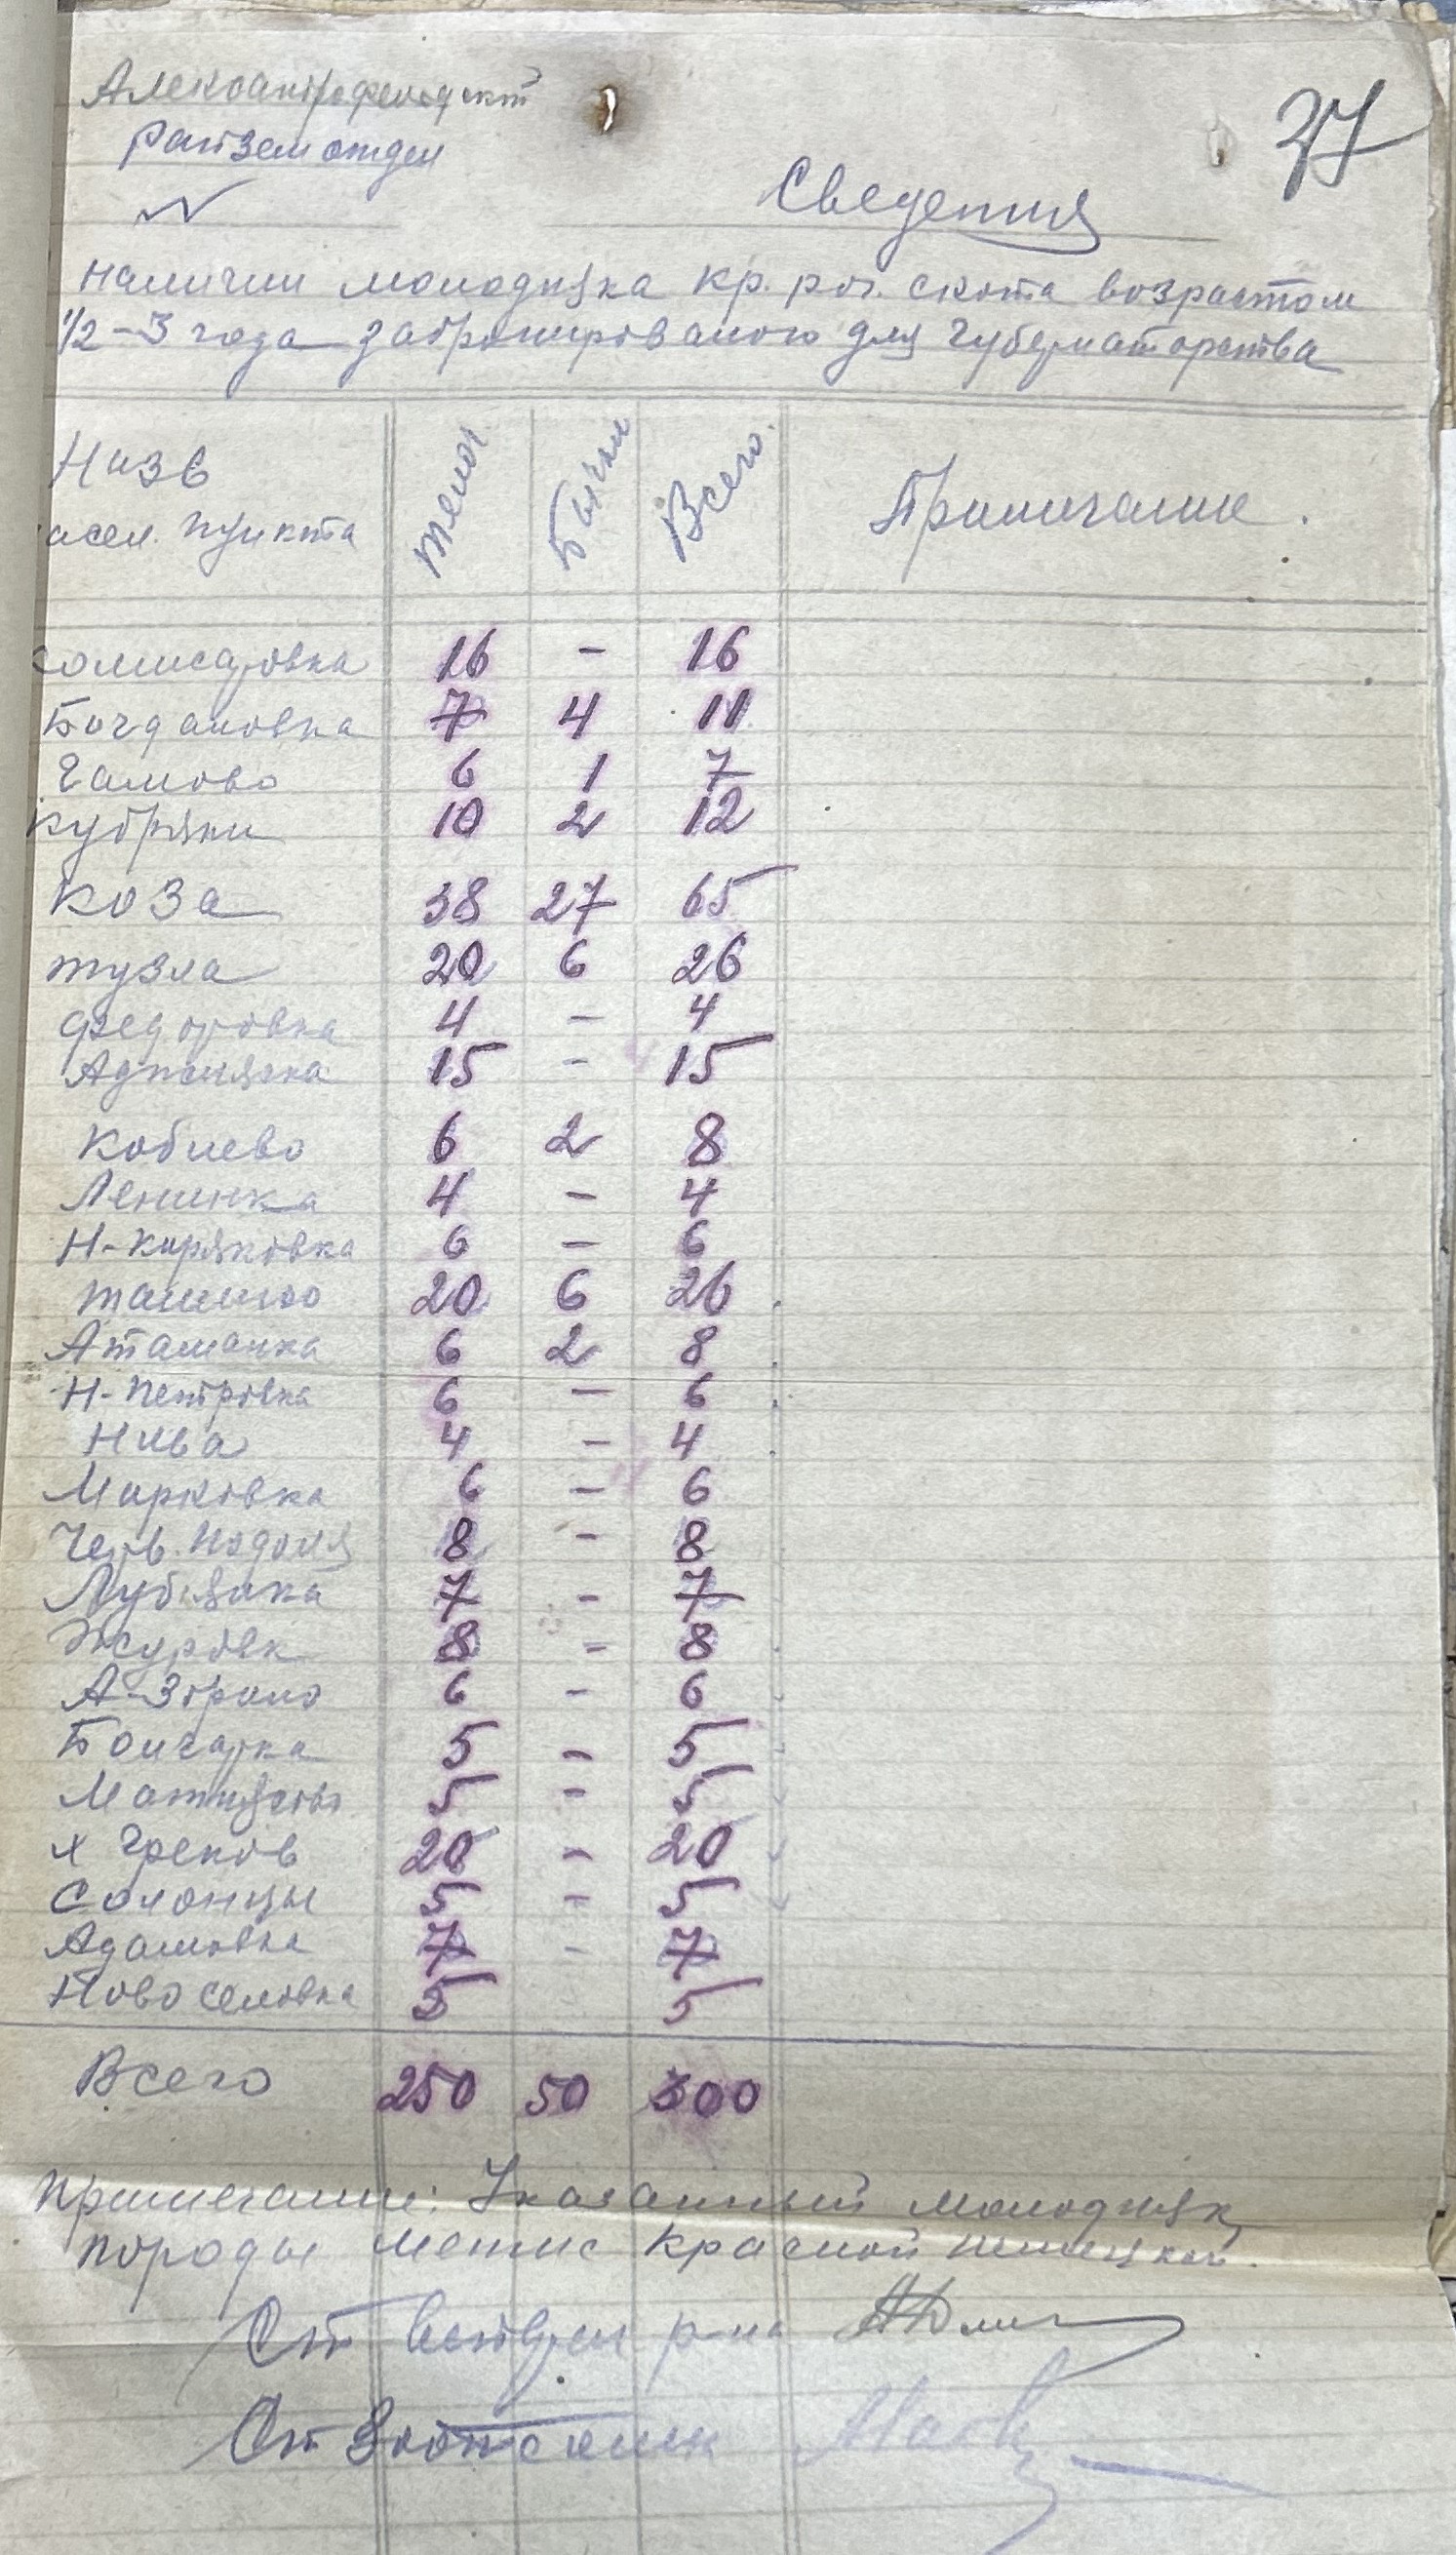 Александрфельдский
Райземотдел
N
37
Сведения
Наличии молодняка кр. рог. скота возрастом
1/2-3 года забронированого для губернаторства
Назв насел. пункта | телоч | Бычки | Всего. | Примечание.
Комисаровка 16 - 16
Богдановка 7 4 11
Гамово 6 1 7
Кубряки 10 2 12
Коза 38 27 65
Тузла 20 6 26
Федоровка 4 - 4
Аджияска 15 - 15
Коблево 6 2 8
Ленинка 4 - 4
Н-Киряковка 6 - 6
Ташино 20 6 26
Атаманка 6 2 8
Н-Петровка 6 - 6
Нива 4 - 4
Марковка 6 - 6
Черв. Подоля 8 - 8
Лубянка 7 - 7
Журовк 8 - 8
А-Зорино 6 - 6
Болгарка 5 - 5
5 - 5
х Греков 20 - 20
Солонцы 5 - 5
Адамовка 7 - 7
Новоселовка 5 5
Всего 250 50 300
Примечание: Указанный молодняк
породы метис красной немецкой.
От р-на
От